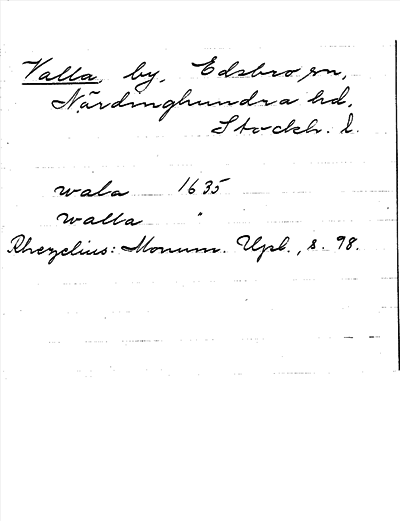 Valla, by, Edsbro sn,
Närdinghundra hd,
Stockh. l.
wala 1635
walla "
Rhezelius: Monum. Upl., s. 98.